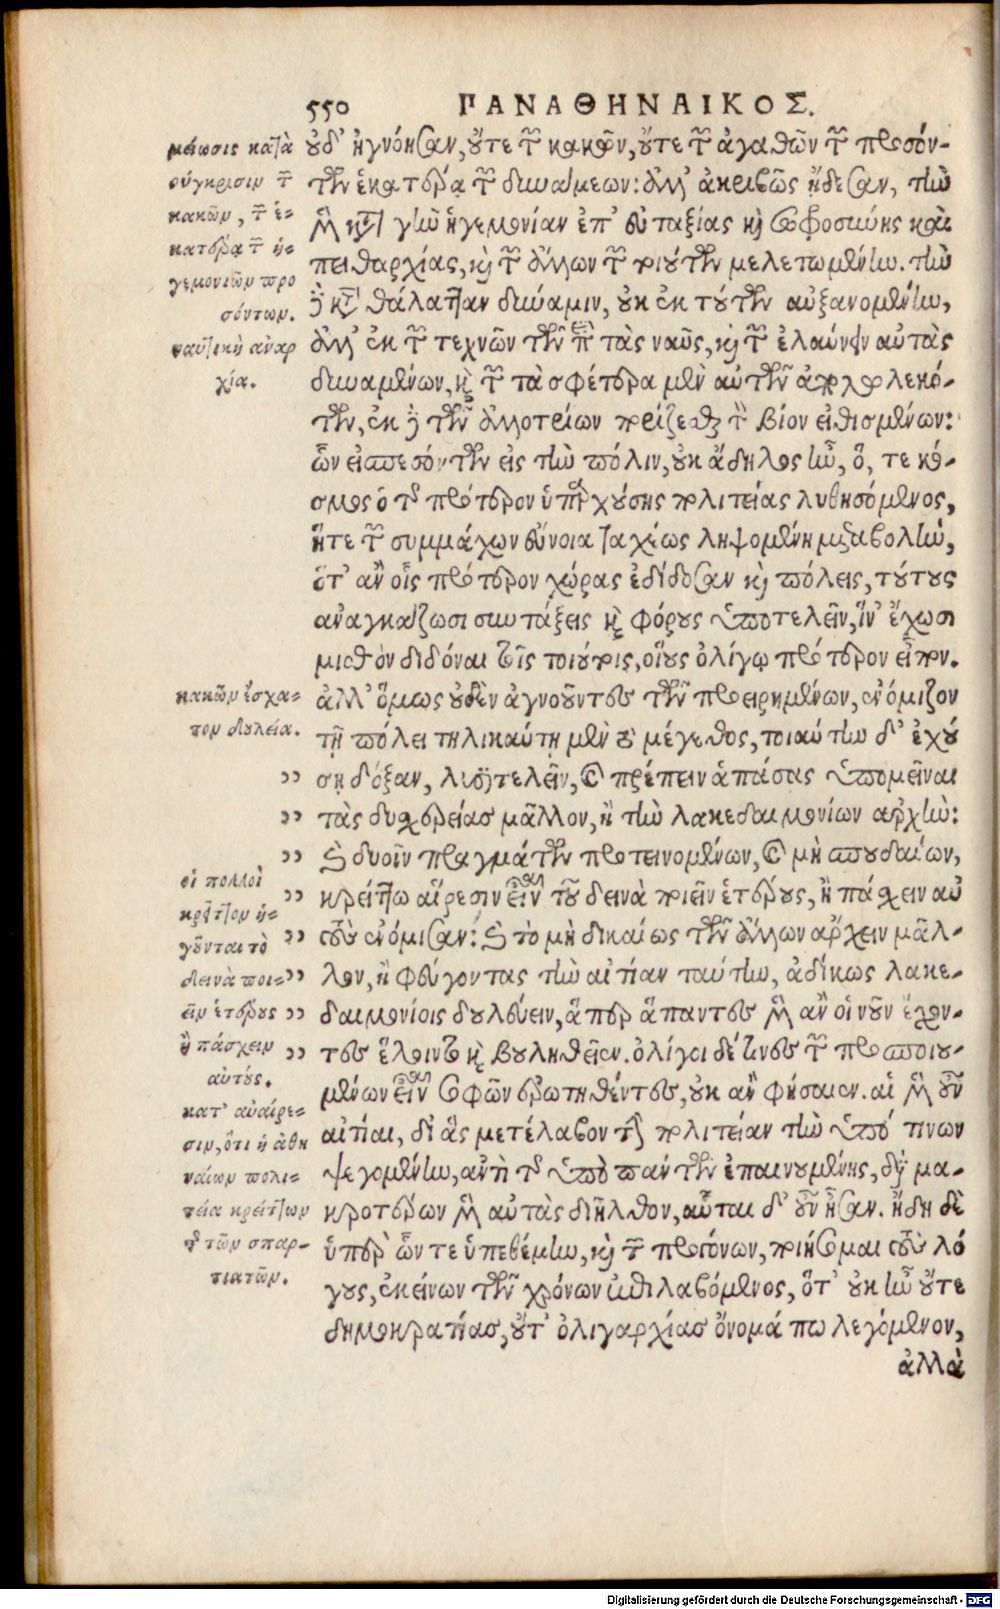 550 ΠΑΝΑΘΗΝΑΙΚΟΣ.
οὐδ' ἠγνόησαν, οὔτε τῶν κακῶν, οὔτε τῶν ἀγαθῶν τῶν προσόν-
των ἑκατέρᾳ τῶν δυνάμεων: ἀλλ' ἀκριβῶς ᾔδεσαν, τὴν
μὲν κατὰ γῆν ἡγεμονίαν ἐπ' εὐταξίας καὶ σωφροσύνης καὶ
πειθαρχίας, καὶ τῶν ἄλλων τῶν τοιούτων μελετωμένην. τὴν
δὲ κατὰ θάλατταν δύναμιν, οὐκ ἐκ τούτων αὐξανομένην,
ἀλλ' ἐκ τῶν τεχνῶν τῶν περὶ τὰς ναῦς, καὶ τῶν ἐλαύνειν αὐτὰς
δυναμένων, καὶ τῶν τὰ σφέτερα μὲν αὐτῶν ἀπολωλεκό-
των, ἐκ δὲ τῶν ἀλλοτρίων πορίζεσθαι τὸν βίον εἰθισμένων:
ὧν εἰσπεσόντων εἰς τὴν πόλιν, οὐκ ἄδηλος ἦν, ὅ, τε κό-
σμος ὁ τῆς πρότερον ὑπαρχούσης πολιτείας λυθησόμενος,
ἥτε τῶν συμμάχων εὔνοια ταχέως ληψομένη μεταβολὴν,
ὅτ' ἂν οἷς πρότερον χώρας ἐδίδοσαν καὶ πόλεις, τούτους
ἀναγκάζωσι συντάξεις καὶ φόρους ὑποτελεῖν, ἵν' ἔχωσι
μισθὸν διδόναι τοῖς τοιούτοις, οἵους ὀλίγῳ πρότερον εἶπον.
ἀλλ' ὅμως οὐδὲν ἀγνοοῦντες τῶν προειρημένων, ἐνόμιζον
τῇ πόλει τηλικαύτῃ μὲν τὸ μέγεθος, τοιαύτην δ' ἐχού
σῃ δόξαν, λυσιτελεῖν, καὶ πρέπειν ἁπάσας ὑπομεῖναι
τὰς δυσχερείας μᾶλλον, ἢ τὴν λακεδαιμονίων ἀρχὴν:
δυοῖν πραγμάτων προτεινομένων, καὶ μὴ σπουδαίων,
κρείττω αἵρεσιν εἶναι τοῦ δεινὰ ποιεῖν ἑτέρους, ἢ πάσχειν αὐ
τοὺς ἐνόμισαν: καὶ τὸ μὴ δικαίως τῶν ἄλλων ἄρχειν μᾶλ-
λον, ἢ φεύγοντας τὴν αἰτίαν ταύτην, ἀδίκως λακε-
δαιμονίοις δουλεύειν, ἅπερ ἅπαντες μὲν ἂν οἱ νοῦν ἔχον-
τες ἕλοιντο καὶ βουληθεῖεν. ὀλίγοι δέ τινες τῶν προσποιου-
μένων εἶναι σοφῶν ἐρωτηθέντες, οὐκ ἂν φήσαιεν. αἱ μὲν οὖν
αἰτίαι, δι' ἃς μετέλαβον τὴν πολιτείαν τὴν ὑπό τινων
ψεγομένην, ἀντὶ τῆς ὑπὸ πάντων ἐπαινουμένης, διὰ μα-
κροτέρων μὲν αὐτὰς διῆλθον, αὗται δ' οὖν ἦσαν. ἤδη δὲ
ὑπὲρ ὧν τε ὑπεθέμην, καὶ τῶν προγόνων, ποιήσομαι τοὺς λό
γους, ἐκείνων τῶν χρόνων ἐπιλαβόμενος, ὅτ' οὐκ ἦν οὔτε
δημοκρατίας, οὔτ' ὀλιγαρχίας ὄνομά πω λεγόμενον,
ἀλλὰ
μείωσις κατὰ
σύγκρισιν τῶν
κακῶν, τῶν ἑ-
κατέρᾳ τῶν ἡ-
γεμονιῶν προ
σόντων.
ναυτικὴ ἀναρ
χία.
κακῶν ἔσχα-
τον δουλεία.
οἱ πολλοὶ
κρεῖττον ἡ-
γοῦνται τὸ
δεινὰ ποι-
εῖν ἑτέρους
ἢ πάσχειν
αὐτούς.
κατ' ἀναίρε-
σιν, ὅτι ἡ ἀθη
ναίων πολι-
τεία κρείττων
τῆς τῶν σπαρ-
τιατῶν.
Digitalisierung gefördert durch die Deutsche Forschungsgemeinschaft - DFG